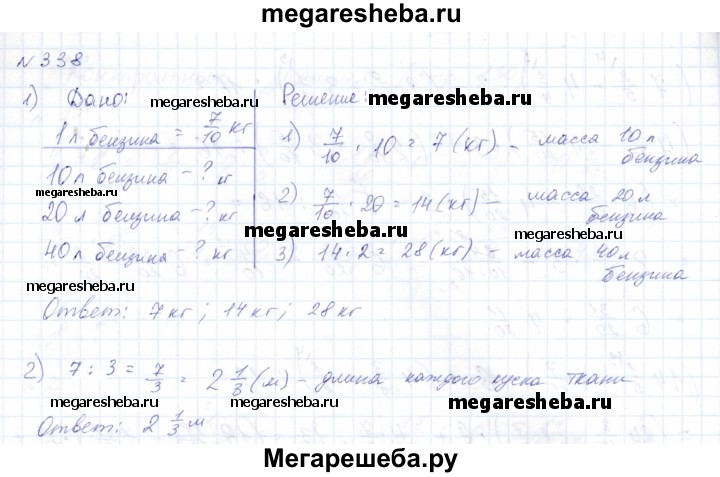 megaresheba.ru
N 338
1) Дано: megaresheba.ru Решение: megaresheba.ru
1 л бензина = 7/10 кг
1) 7/10 · 10 = 7 (кг) – масса 10 л бензина
10 л бензина – ? кг
megaresheba.ru
2) 7/10 · 20 = 14 (кг) – масса 20 л бензина
20 л бензина – ? кг
megaresheba.ru
megaresheba.ru
40 л бензина – ? кг
3) 14 · 2 = 28 (кг) – масса 40 л бензина
megaresheba.ru
megaresheba.ru
Ответ: 7 кг; 14 кг; 28 кг
2) 7 : 3 = 7/3 = 2 1/3 (м) – длина каждого куска ткани
megaresheba.ru megaresheba.ru megaresheba.ru
Ответ: 2 1/3 м
Мегарешеба.ру